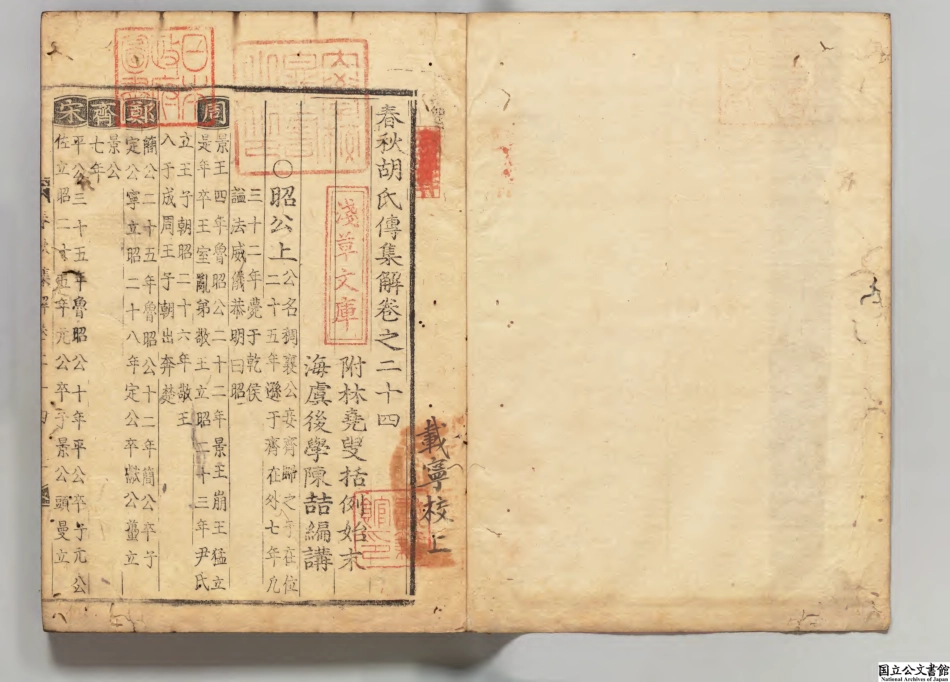 載寧校上
春秋胡氏傳集解卷之二十四
附林堯叟括例始末
淺草文庫
海虞後學陳喆編講
○昭公上
公名稠襄公妾齊歸之子在位
二十五年遜于齊在外七年凡
三十二年薨于乾侯
謚法威儀恭明曰昭
周
景王四年魯昭公二十二年景王崩王猛立
是年卒王室亂弟敬王立昭二十三年尹氏
立王子朝昭二十六年敬王
入于成周王子朝出奔楚
鄭
簡公二十五年魯昭公十二年簡公卒子
定公寧立昭二十八年定公卒獻公蠆立
齊
景公
七年
宋
平公三十五年魯昭公十年平公卒子元公
佐立昭二十五年元公卒子景公頭曼立
日本
政府
圖書
国立公文書館
National Archives of Japan